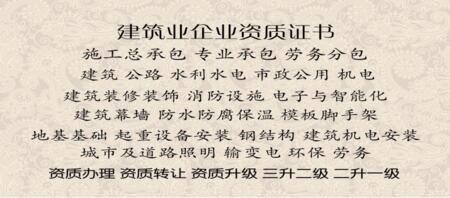 建筑业企业资质证书
施工总承包 专业承包 劳务分包
建筑 公路 水利水电 市政公用 机电
建筑装修装饰 消防设施 电子与智能化
建筑幕墙 防水防腐保温 模板脚手架
地基基础 起重设备安装 钢结构 建筑机电安装
城市及道路照明 输变电 环保 劳务
资质办理 资质转让 资质升级 三升二级 二升一级